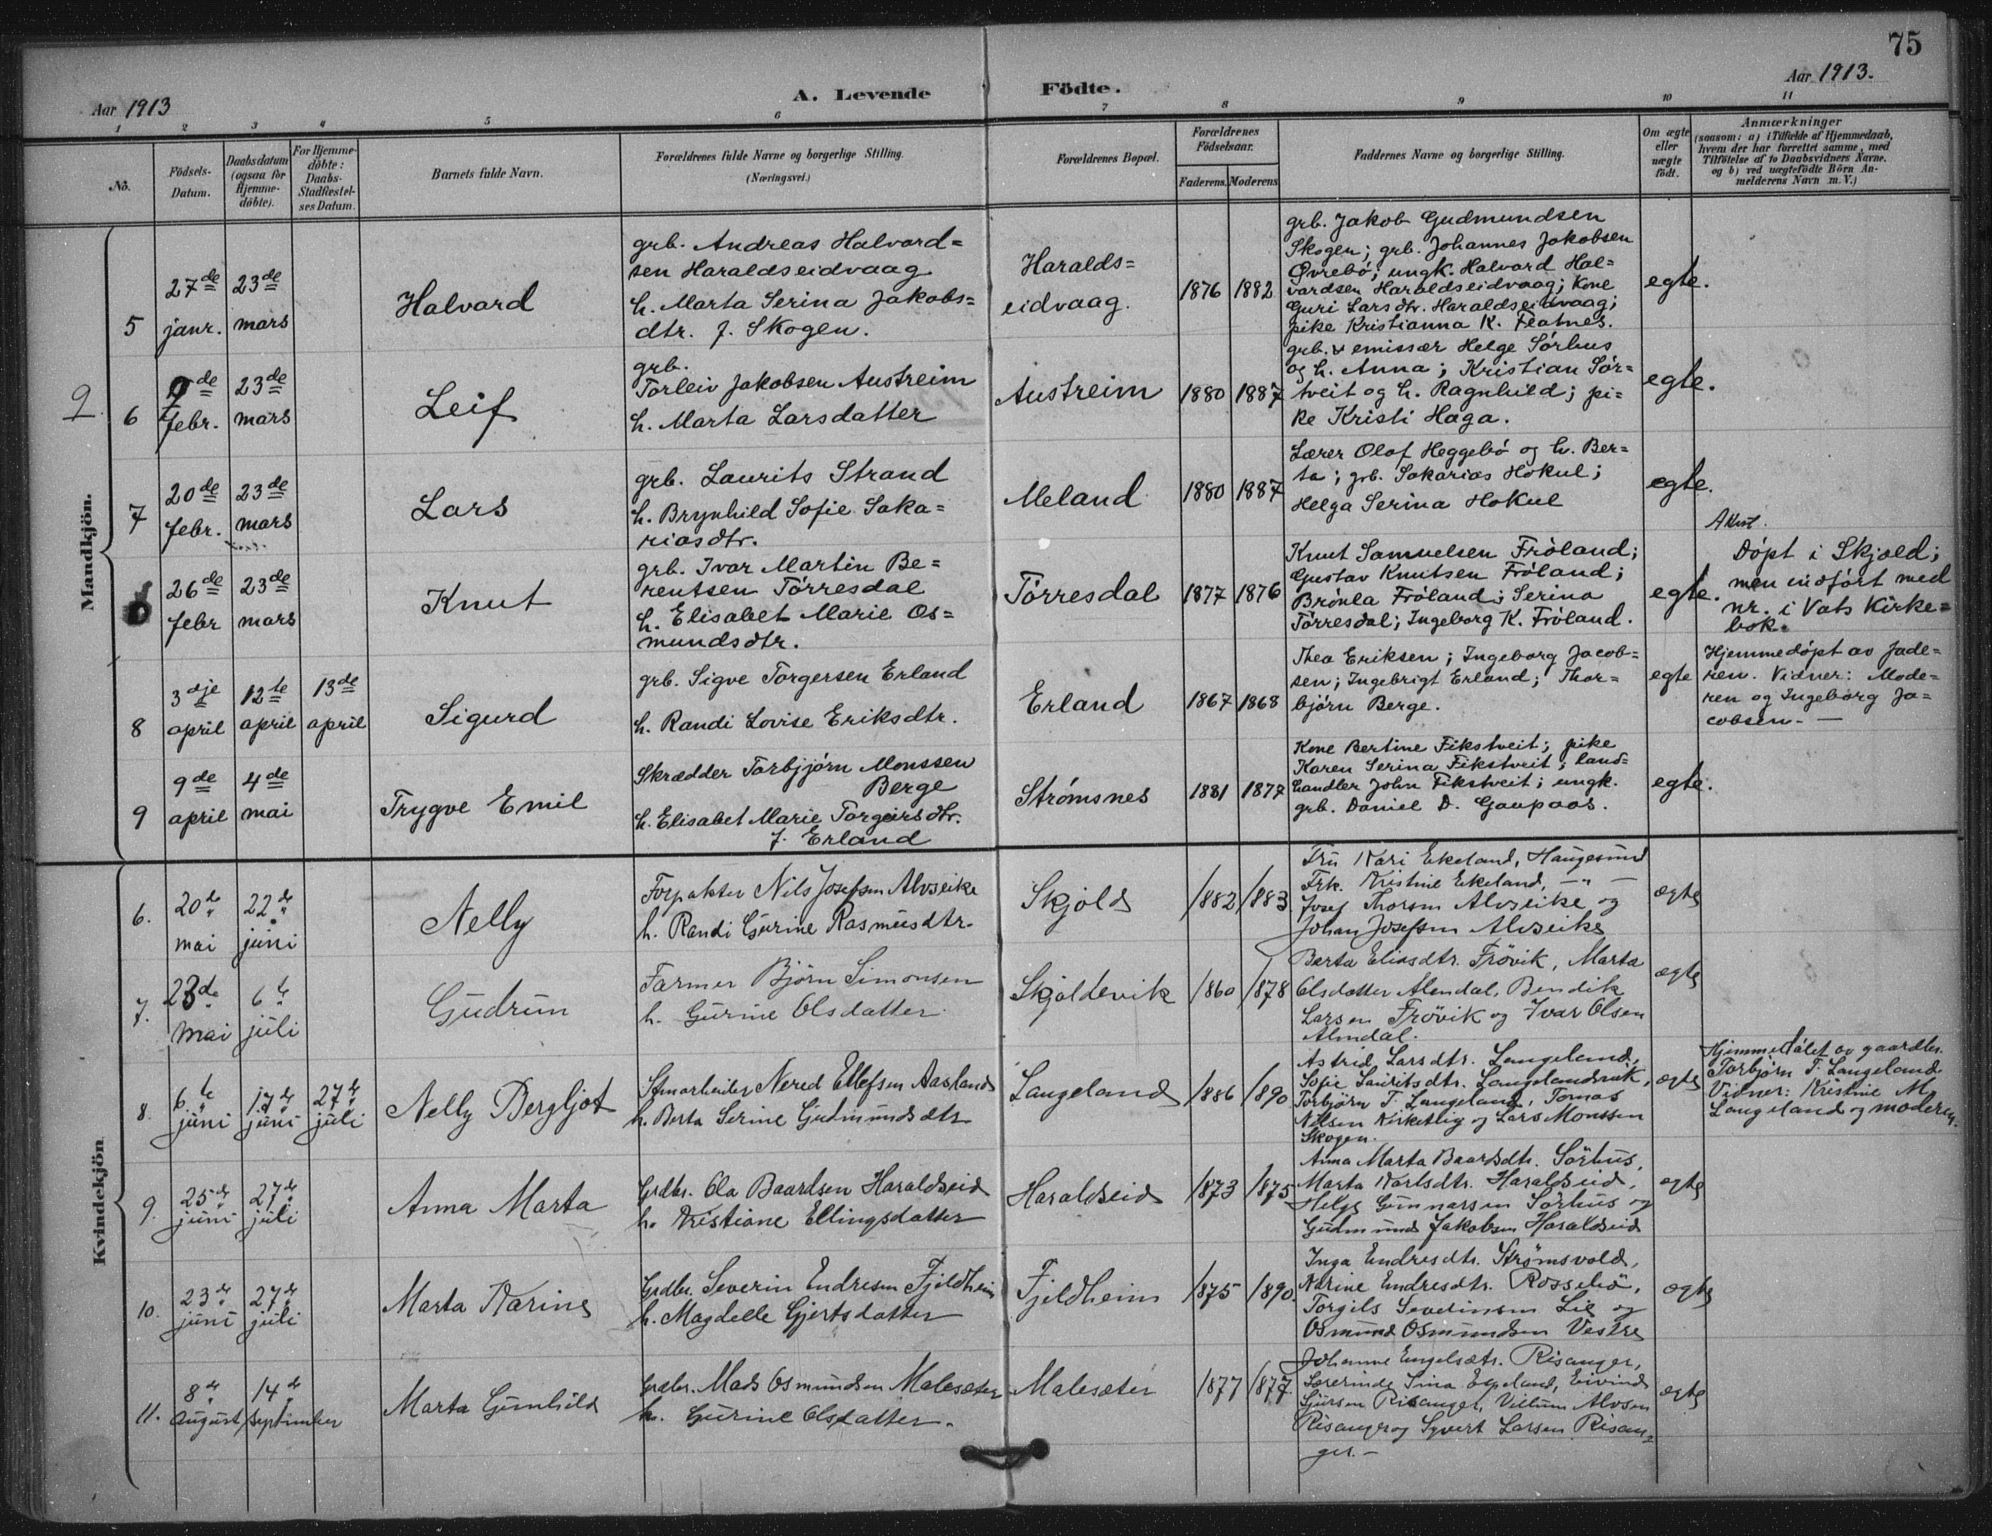 75
Aar 1913
A. Levende Födte.
Aar 1913.
1 2 3 4 5 6 7 8 9 10 11
No.
Födsels-
Datum.
Daabsdatum
(ogsaa for
Hjemme-
döbte).
For Hjemme-
döbte:
Daabs-
Stadfæstel-
ses Datum.
Barnets fulde Navn.
Forældrenes fulde Navne og borgerlige Stilling.
(Næringsvei.)
Forældrenes Bopæl.
Forældrenes
Födselsaar.
Faderens.
Moderens
Faddernes Navne og borgerlige Stilling.
Om ægte
eller
uægte
födt.
Anmærkninger
(saasom: a) i Tilfælde af Hjemmedaab,
hvem der har forrettet samme, med
Tilföielse af to Daabsvidners Navne,
og b) ved uægtefödte Börn An-
melderens Navn m. V.)
Mandkjön.
2
5
27de
janr.
23de
mars
Halvard
grb. Andreas Halvard=
sen Haraldseidvaag
h. Marta Serina Jakobs=
dtr. f. Skogen.
Haralds=
eidvaag.
1876
1882
grb. Jakob Gudmundsen
Skogen; grb. Johannes Jakobsen
Øvrebö; ungk. Halvard Hal=
vardsen Haraldseidvaag; Kone
Guri Larsdtr. Haraldseidvaag;
pike Kristianna K. Flatnes.
egte.
6
9de
febr.
23de
mars
Leif
grb.
Torleiv Jakobsen Austreim
h. Marta Larsdatter
Austreim
1880
1887
grb. & emissær Helge Sørhus
og h. Anna; Kristian Sør=
tveit og h. Ragnhild; pi=
ke Kristi Haga.
egte.
7
20de
febr.
23de
mars
Lars
grb. Laurits Strand
h. Brynhild Sofie Saka=
riasdtr.
Meland
1880
1887
Lærer Olaf Heggebö og h. Ber=
ta; grb. Sakarias Hokul;
Helga Serina Hokul
egte.
26de
febr
23de
mars
Knut
grb. Ivar Martin Be=
rentsen Tørresdal
h. Elisabet Marie Os=
mundsdtr.
Tørresdal
1877
1876
Knut Samuelsen Fröland;
Gustav Knutsen Fröland;
Brönla Fröland; Serina
Törresdal; Ingeborg K. Fröland.
egte.
Døpt i Skjold;
men indført med
nr. i Vats Kirke=
bok.
8
3dje
april
12te
april
13de
april
Sigurd
grb. Sigve Torgersen Erland
h. Randi Lovise Eriksdtr.
Erland
1867
1868
Thea Eriksen; Ingeborg Jacob=
sen; Ingebrigt Erland; Thor=
bjørn Berge.
egte
Hjemmedøpt av fade=
ren. Vidner: Mode=
ren og Ingeborg Ja=
cobsen. —
9
9de
april
4de
mai
Trygve Emil
Skrædder Torbjjørn Monssen
Berge
h. Elisabet Marie Torgeirsdtr.
f. Erland
Strømsnes
1881
1877
Kone Bertine Fikstveit; pike
Karen Serina Fikstveit; land=
handler John Fikstveit; ungk.
grb. Daniel D. Gaupaas.
egte.
Kvindekjön
6.
20de
mai
22de
juni
Nelly
Forpakter Nils Josefsen Alvseike
h. Randi Gurine Rasmusdtr.
Skjold
1882
1883
Fru Kari Ekeland, Haugesund
Frk. Kristine Ekeland, — " —
Josef Thorsen Alvseike og
Johan Josefsen Alvseike
ægte
7.
23de
mai
6te
juli
Gudrun
Farmer Björn Simonsen
h. Gurine Olsdatter.
Skjoldevik
1860
1878
Berta Eliasdtr. Frövik, Marta
Olsdatter Alendal, Bendik
Larsen Frövik og Ivar Olsen
Almdal.
ægte
8.
6te
juni
17de
juni
27de
juli
Nelly Bergljot
Stenarbeider Nered Ellefsen Aasland
h. Berta Serine Gudmundsdtr
Langeland
1886
1890
Astrid Larsdtr. Langeland,
Sofie Lauritsdtr. Langelandsvik,
Torbjørn T. Langeland, Tomas
Nilsen Kirketlig og Lars Monssen
Skogen.
ægte
Hjemmedøbt av gaardbr.
Torbjørn T. Langeland.
Vidner: Kristine M.
Langeland og moderen.
9.
25de
juni
27de
juli
Anna Marta
Grdbr. Ola Baardsen Haraldseid
h. Kristiane Ellingsdatter
Haraldseid
1873
1875
Anna Marta Baardsdtr. Sørhus,
Marta Karlsdtr. Haraldseid,
Helge Gunnarsen Sørhus og
Gudmund Jakobsen Haraldseid
ægte
10.
23de
juni
27de
juli
Marta Karine
Grdbr. Severin Endresen Fjeldheim
h. Magdelle Gjertsdatter
Fjeldheim
1875
1890.
Inga Endresdtr. Strømsvold,
Karine Endresdtr. Rossebø,
Torgils Severinsen Lie og
Osmund Osmundsen Vestre
ægte
11.
8de
august
14de
september
Marta Gunhild
Grdbr. Mads Osmundsen Malesæter
h. Gurine Olsdatter.
Malesæter
1877
1877.
Johanne Engelsdtr. Risanger,
Lærerinde Sina Egeland, Eivind
Sjursen Risanger, Villum Alvsen
Risanger og Syvert Larsen Risan=
ger. —
ægte